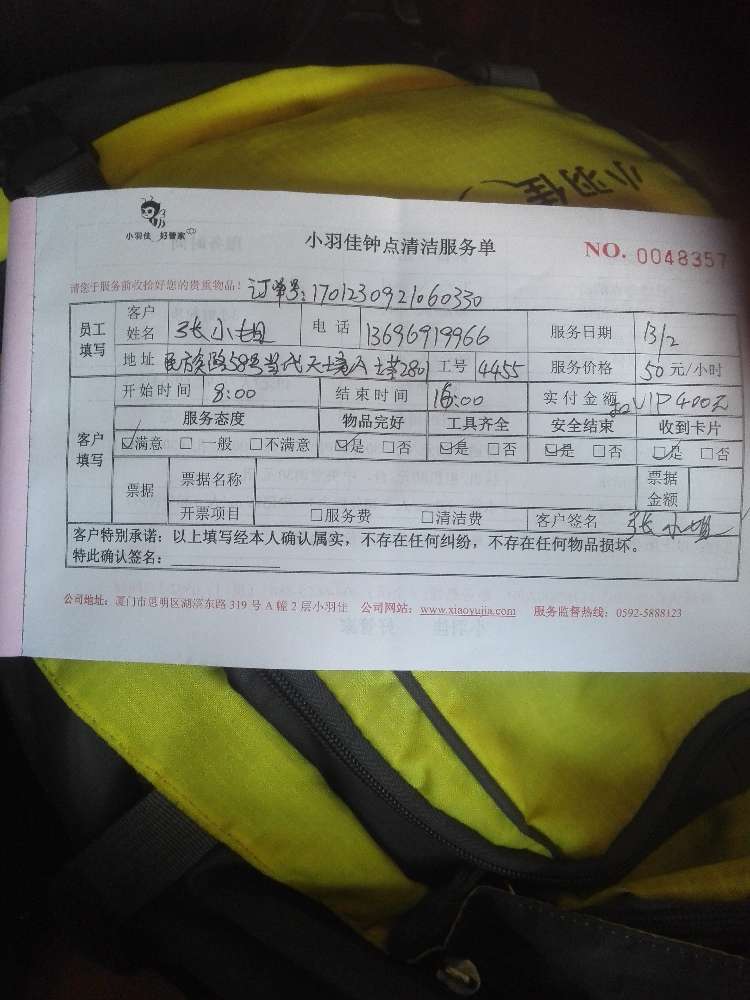 小羽佳
小羽佳 好管家
小羽佳钟点清洁服务单
NO. 0048357
请您于服务前收拾好您的贵重物品！ 订单号：1701230921060330
员工填写 客户姓名 张小姐 电话 13696919966 服务日期 13/2
地址 民族路58号当代天境 2801 工号 4455 服务价格 50元/小时
客户填写 开始时间 8:00 结束时间 16:00 实付金额 扣VIP400元
服务态度 物品完好 工具齐全 安全结束 收到卡片
☑满意 □一般 □不满意 ☑是 □否 ☑是 □否 ☑是 □否 ☑是 □否
票据 票据名称 票据金额
开票项目 □服务费 □清洁费 客户签名 张小姐
客户特别承诺：以上填写经本人确认属实，不存在任何纠纷，不存在任何物品损坏。
特此确认签名：
公司地址：厦门市思明区湖滨东路 319 号 A 幢 2 层小羽佳 公司网站：www.xiaoyujia.com 服务监督热线：0592-5888123